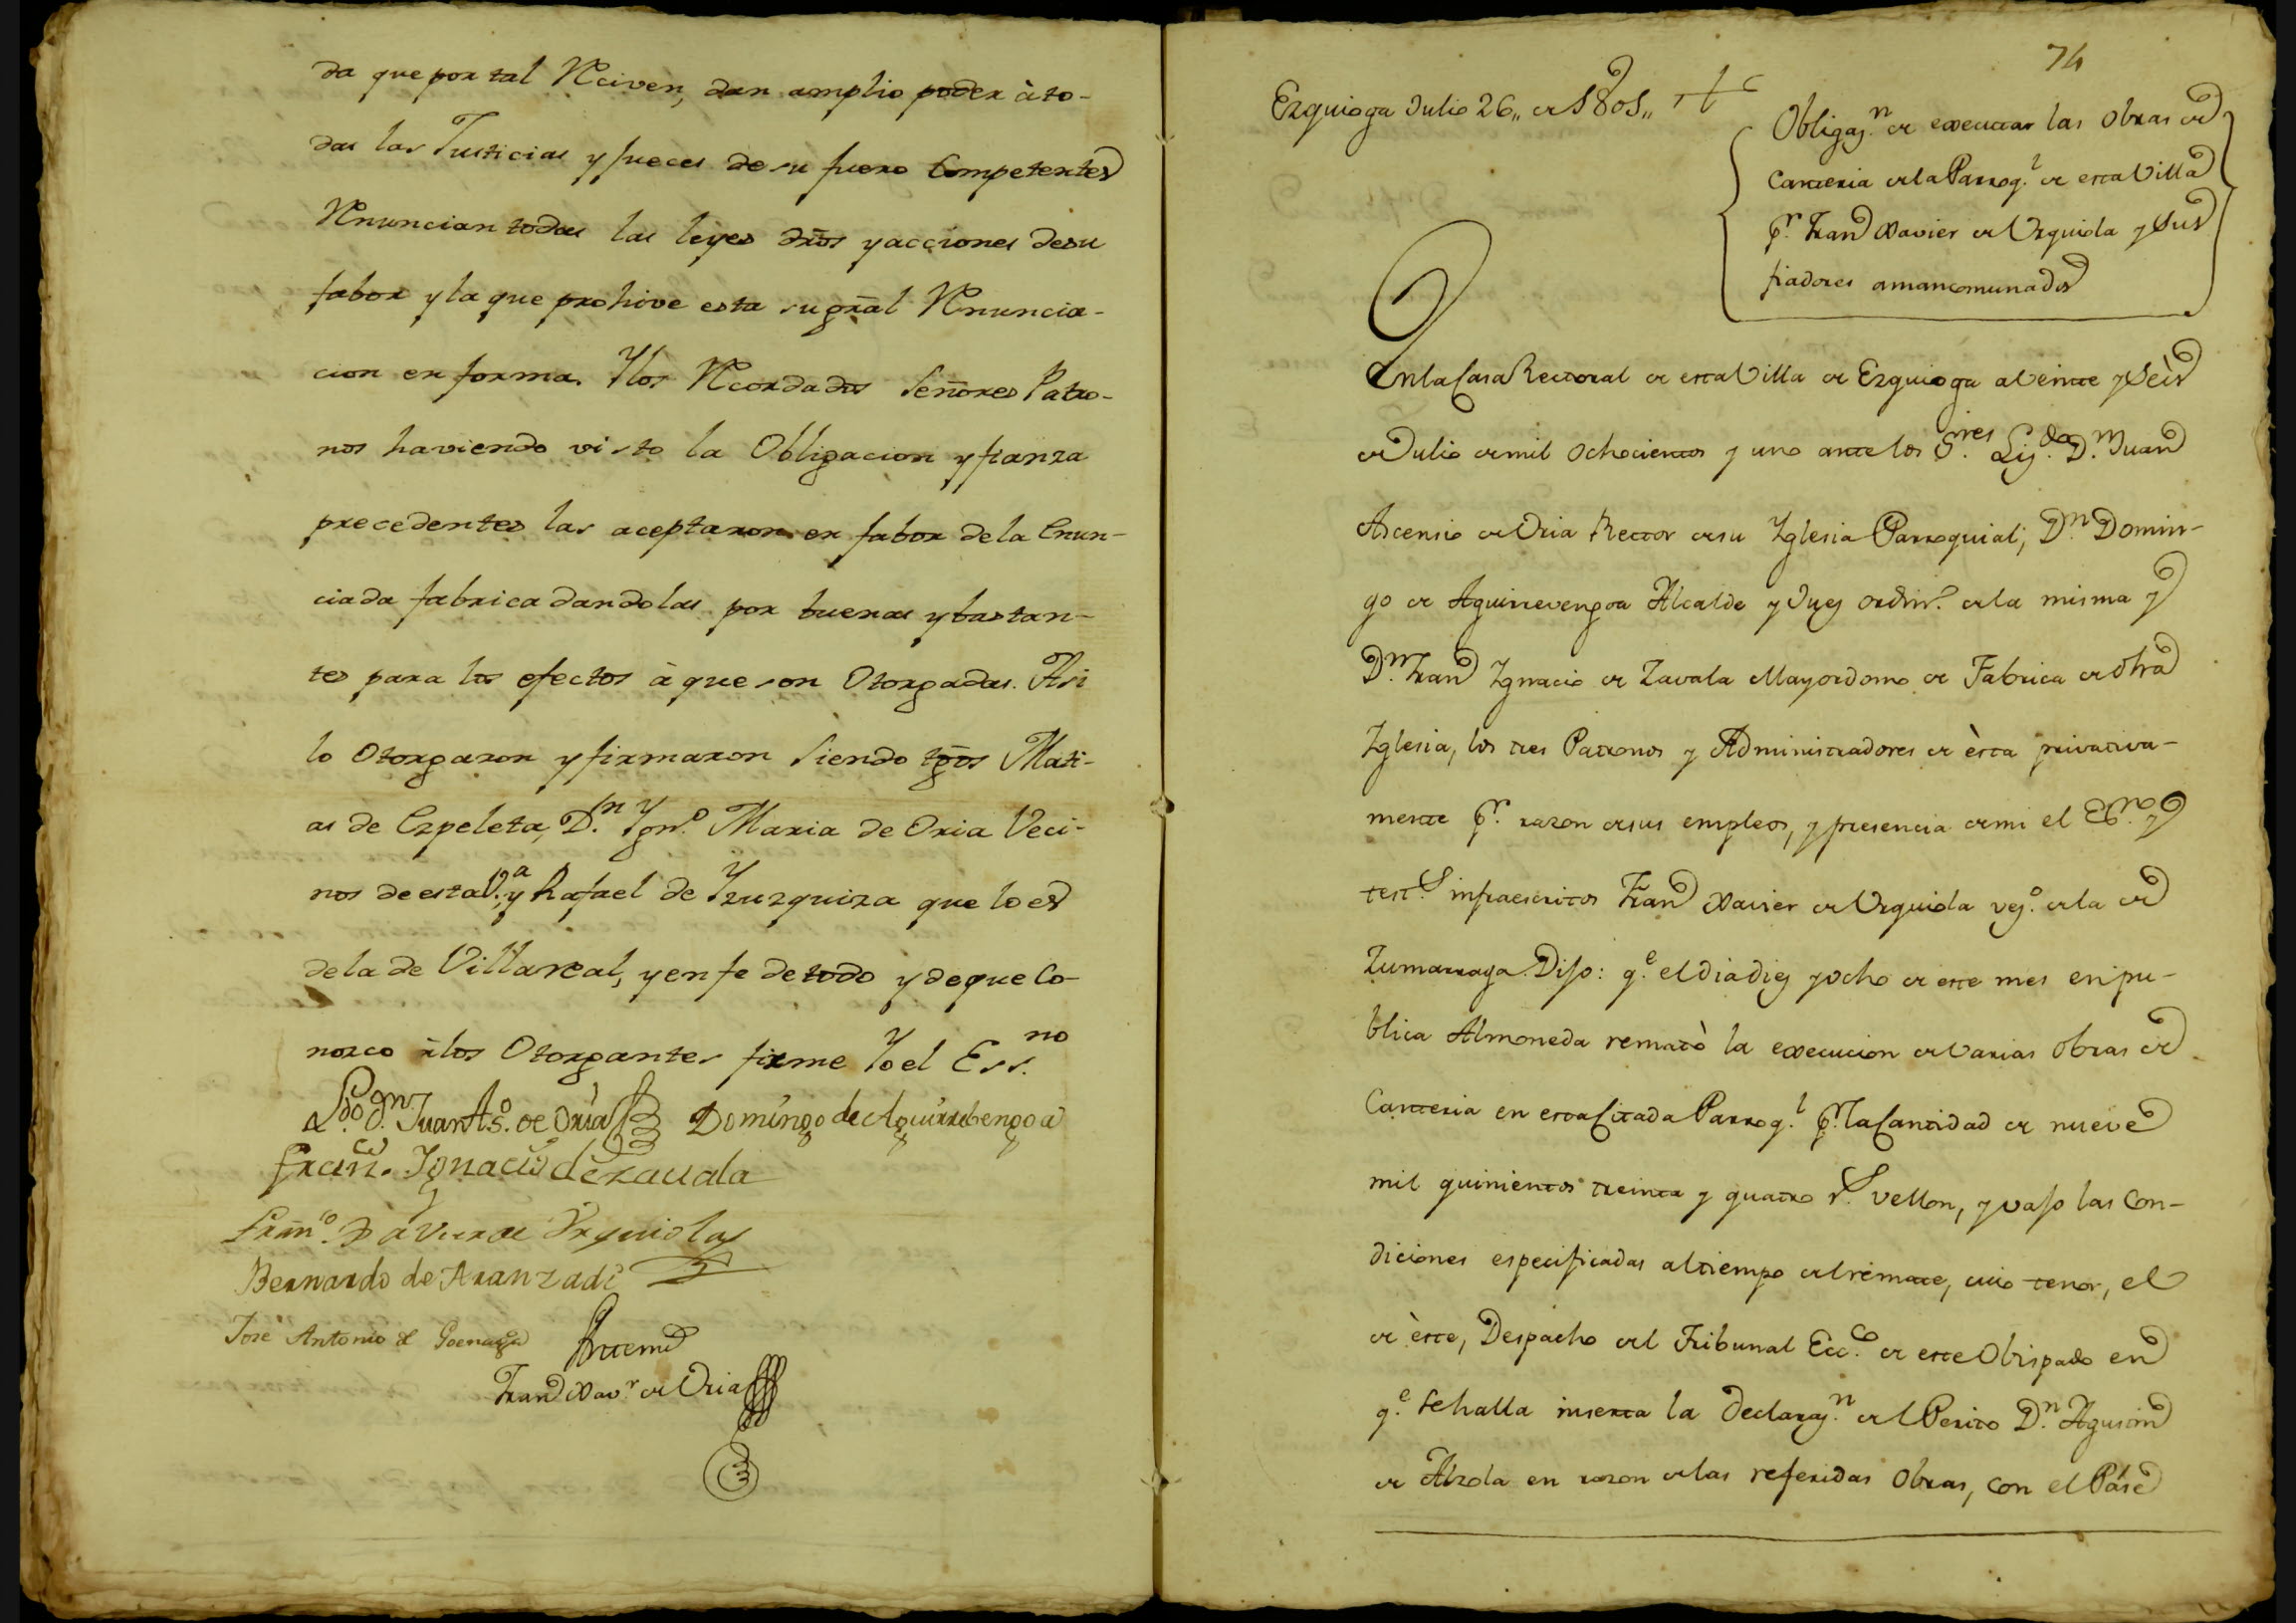 da que por tal Reciven, dan amplio poder à to-
das las Justicias y jueces de su fuero Competentes
Renuncian todas las leyes dr̃os y acciones desu
fabor y la que prohive esta su gr̃al Renuncia-
cion en forma. Ylos Recordados Señores Patro-
nos haviendo visto la Obligacion y fianza
precedentes las aceptaron en fabor dela Enun-
ciada fabrica dandolas por buenas y bastan-
tes para los efectos à que son Otorgadas. Asi
lo Otorgaron y firmaron Siendo tg̃os Mati-
as de Ezpeleta, D.n Ygn.o Maria de Oria Veci-
nos de esta V.a y Rafael de Yzuzquiza que lo es
dela de Villareal, y en fe de todo y de que Co-
nozco àlos Otorgantes firme Yo el Ess.no
L.do D.n Juan As.o de Oria Domingo de Aguirrebengoa
Fran.co Ygnacio de zauala
Fran.co Xavier de Urquiola
Bernardo de Aranzadi
Jose Antonio de Goenaga Antemi
Fran.co Xav.r de Oria
74
Ezquioga Julio 26,, de 1801,,
Obligaz.n de executar las Obras de
Canteria dela Parroq.l de esta Villa
p.r Fran.co Xavier de Urquiola y Sus
fiadores amancomunados
Enla Casa Rectoral de esta Villa de Ezquioga a Veinte y Seis
de Julio de mil Ochocientos y uno ante los S.res Liz.do D.n Juan
Ascensio de Oria Rector de su Yglesia Parroquial; D.n Domin-
go de Aguirrevengoa Alcalde y Juez ordin.o dela misma y
D.n Fran.co Ygnacio de Zavala Mayordomo de Fabrica de dha
Yglesia, los tres Patronos y Administradores de èsta privativa-
mente p.r razon de sus empleos, y presencia de mi el Es.no y
test.s infraescritos Fran.co Xavier de Urquiola vez.o dela de
Zumarraga Dijo: q.e el dia diez y ocho de este mes en pu-
blica Almoneda remató la execucion de Varias Obras de
Canteria en esta Citada Parroq.l p.r la Cantidad de nueve
mil quinientos treinta y quatro r.s vellon, y vajo las Con-
diciones especificadas al tiempo del remate, cuio tenor, el
de èste, Despacho del Tribunal Ecc.co de este Obispado en
q.e se halla inserta la Declaraz.n del Perito D.n Agustin
de Alzola en razon de las referidas Obras, con el Pase